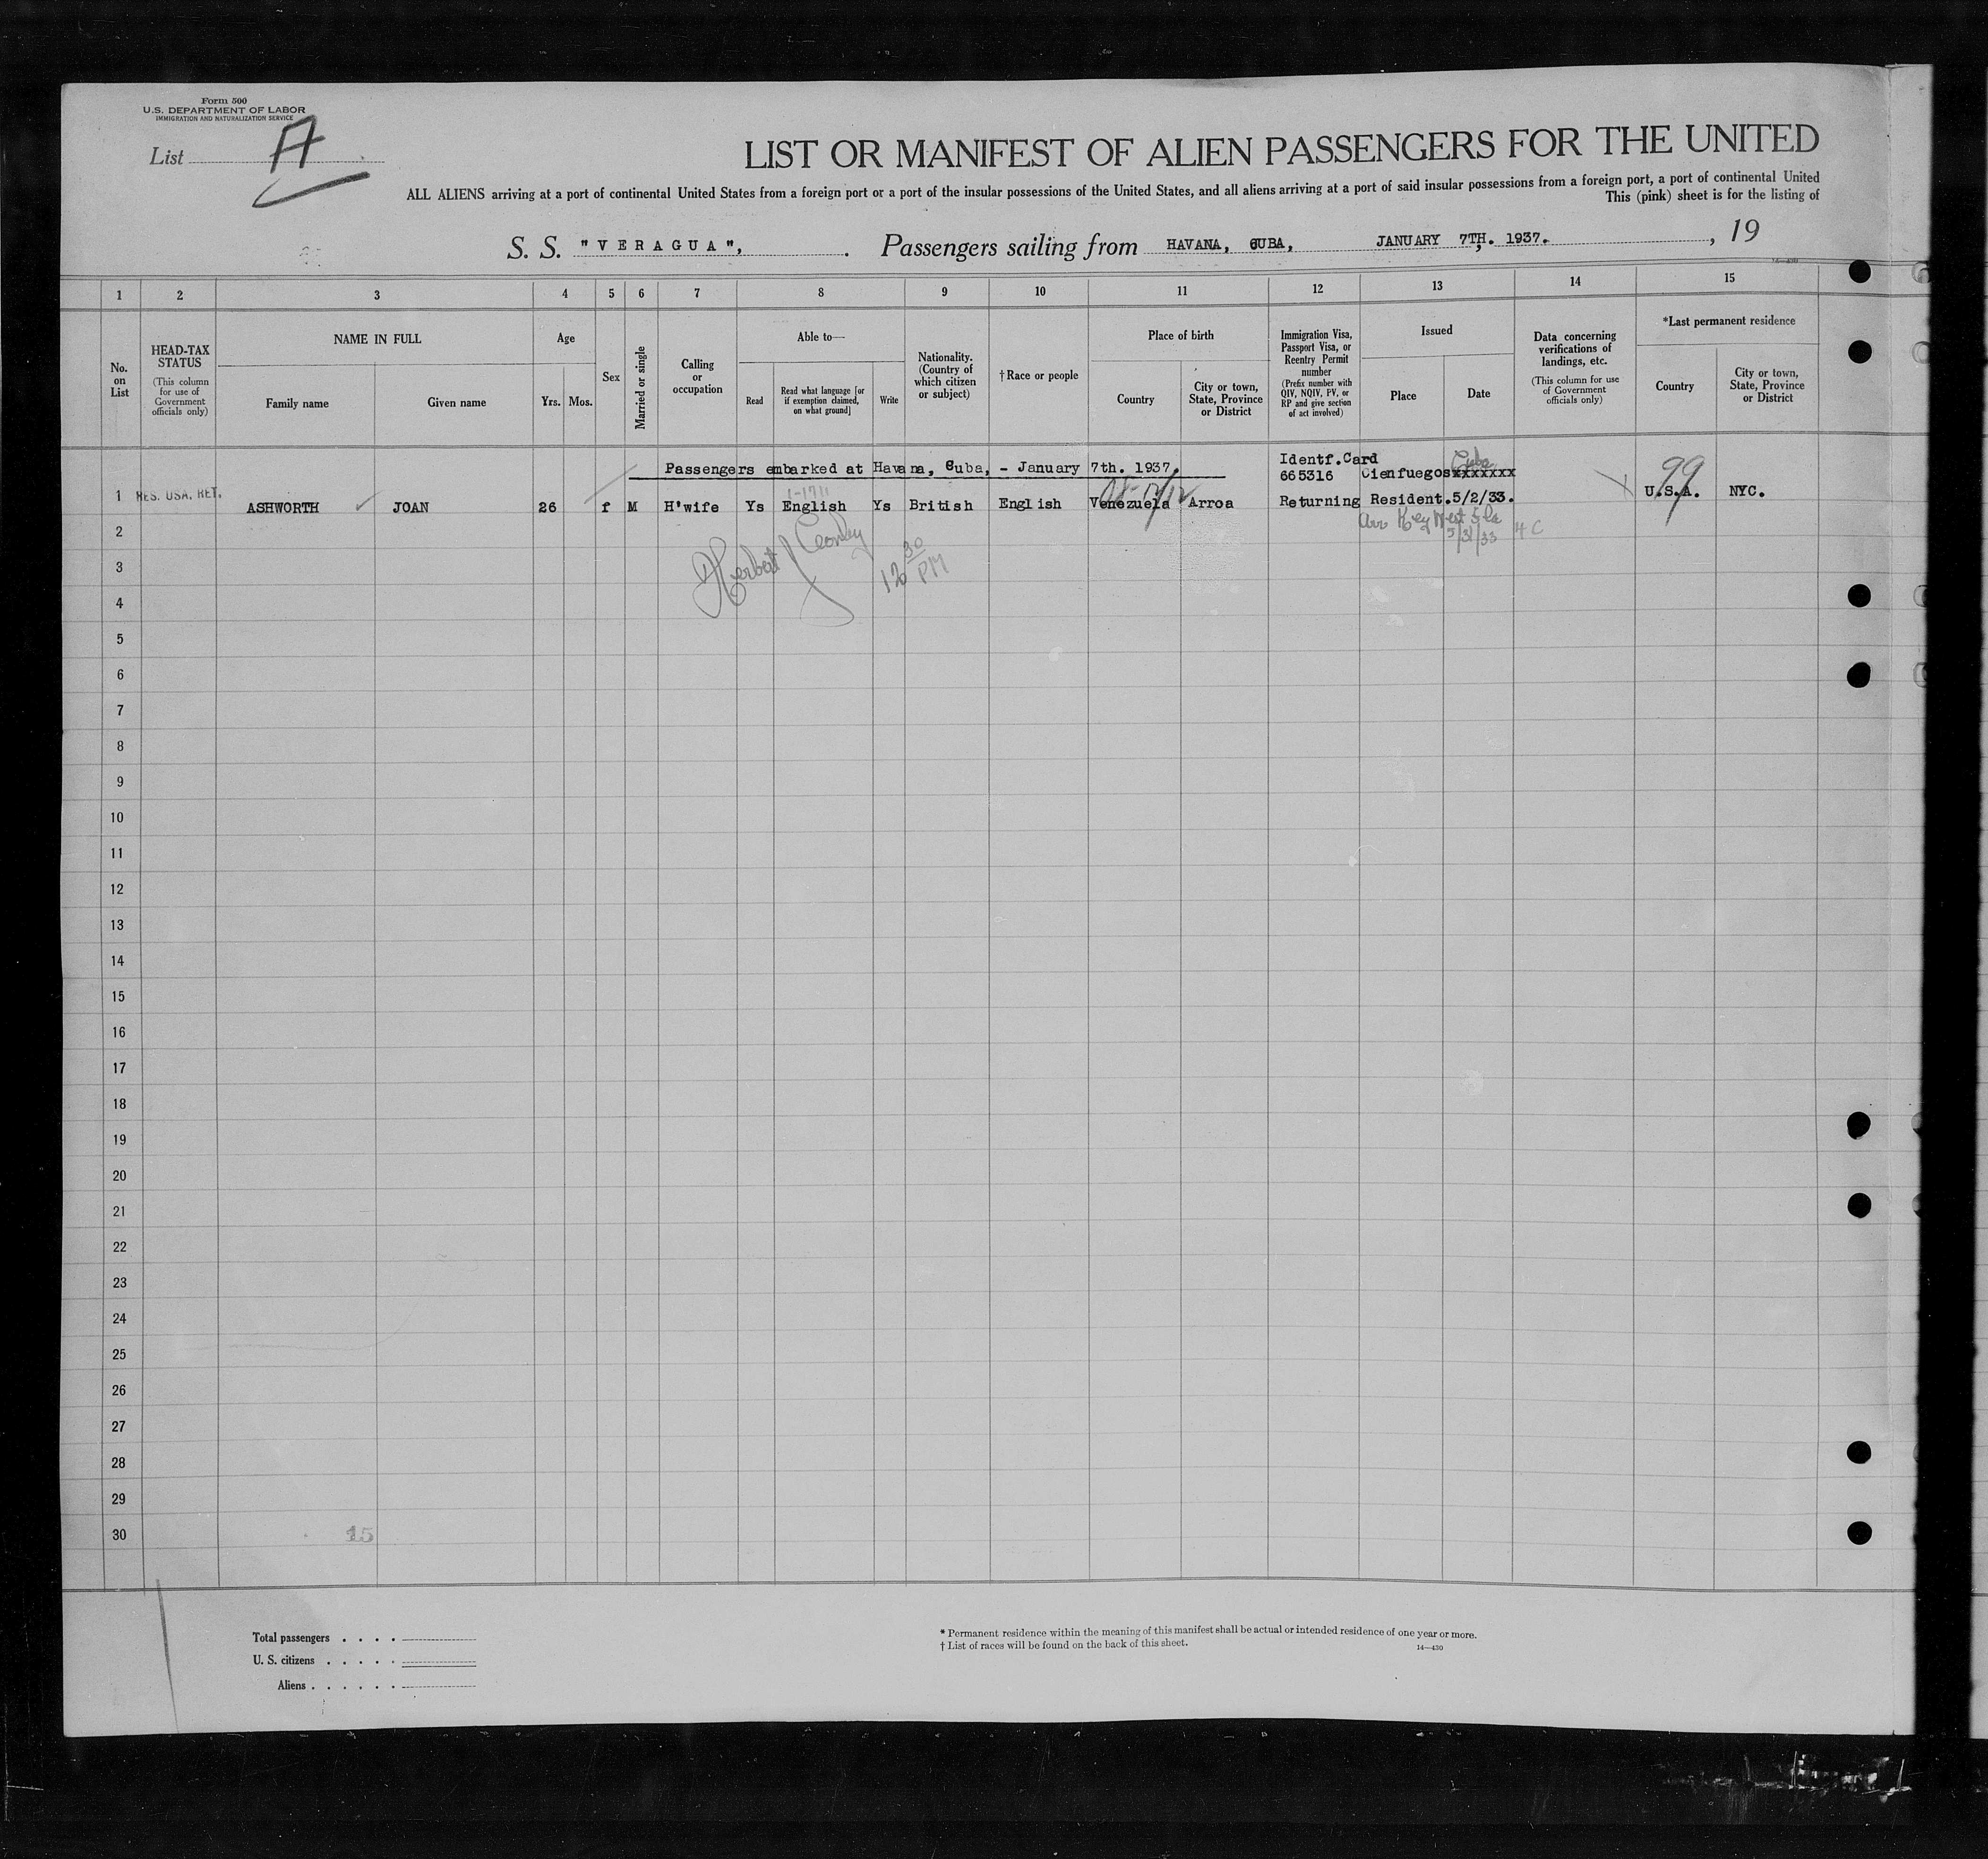 Form 500
U.S. DEPARTMENT OF LABOR
IMMIGRATION AND NATURALIZATION SERVICE
List A
LIST OR MANIFEST OF ALIEN PASSENGERS FOR THE UNITED
ALL ALIENS arriving at a port of continental United States from a foreign port or a port of the insular possessions of the United States, and all aliens arriving at a port of said insular possessions from a foreign port, a port of continental United
This (pink) sheet is for the listing of
S. S. "VERAGUA", . Passengers sailing from HAVANA, CUBA, JANUARY 7TH. 1937. , 19
1 2 3 4 5 6 7 8 9 10 11 12 13 14 15
No. on List
HEAD-TAX STATUS
(This column for use of Government officials only)
NAME IN FULL
Family name
Given name
Age
Yrs.
Mos.
Sex
Married or single
Calling or occupation
Able to—
Read
Read what language [or if exemption claimed, on what ground]
Write
Nationality. (Country of which citizen or subject)
†Race or people
Place of birth
Country
City or town, State, Province or District
Immigration Visa, Passport Visa, or Reentry Permit number
(Prefix number with QIV, NQIV, PV, or RP and give section of act involved)
Issued
Place
Date
Data concerning verifications of landings, etc.
(This column for use of Government officials only)
*Last permanent residence
Country
City or town, State, Province or District
Passengers embarked at Havana, Cuba, - January 7th. 1937.
Identf.Card
665316 Cienfuegosxxxxxxx
Cuba
1 RES. USA. RET. ASHWORTH JOAN 26 f M H'wife Ys English Ys British English Venezuela Arroa Returning Resident.5/2/33. U.S.A. NYC.
99
Arr Key West Fla
5/31/33 4 C
Herbert
12 30 PM
2
3
4
5
6
7
8
9
10
11
12
13
14
15
16
17
18
19
20
21
22
23
24
25
26
27
28
29
30
15
Total passengers . . . .
U. S. citizens . . . . .
Aliens . . . . . .
* Permanent residence within the meaning of this manifest shall be actual or intended residence of one year or more.
† List of races will be found on the back of this sheet.
14—430